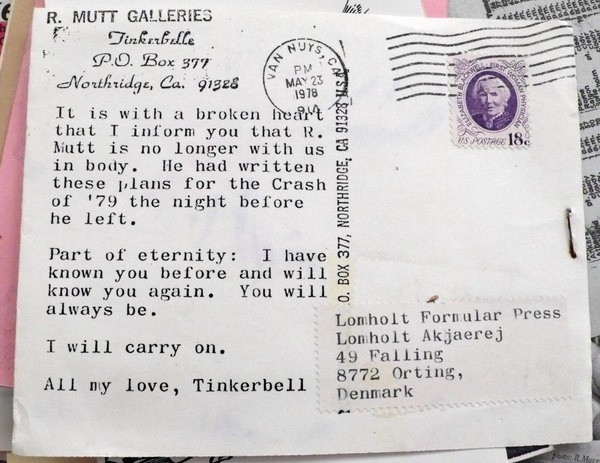 R. MUTT GALLERIES
Tinkerbelle
P.O. Box 377
Northridge, Ca. 91328
It is with a broken heart
that I inform you that R.
Mutt is no longer with us
in body. He had written
these plans for the Crash
of '79 the night before
he left.
Part of eternity: I have
known you before and will
know you again. You will
always be.
I will carry on.
All my love, Tinkerbell
VAN NUYS, CA
PM
MAY 23
1978
914
O. BOX 377, NORTHRIDGE, CA 91328 U.S.A.
ELIZABETH BLACKWELL, FIRST WOMAN PHYSICIAN
US POSTAGE 18c
Lomholt Formular Press
Lomholt Akjaerej
49 Falling
8772 Orting,
Denmark
photo: R.